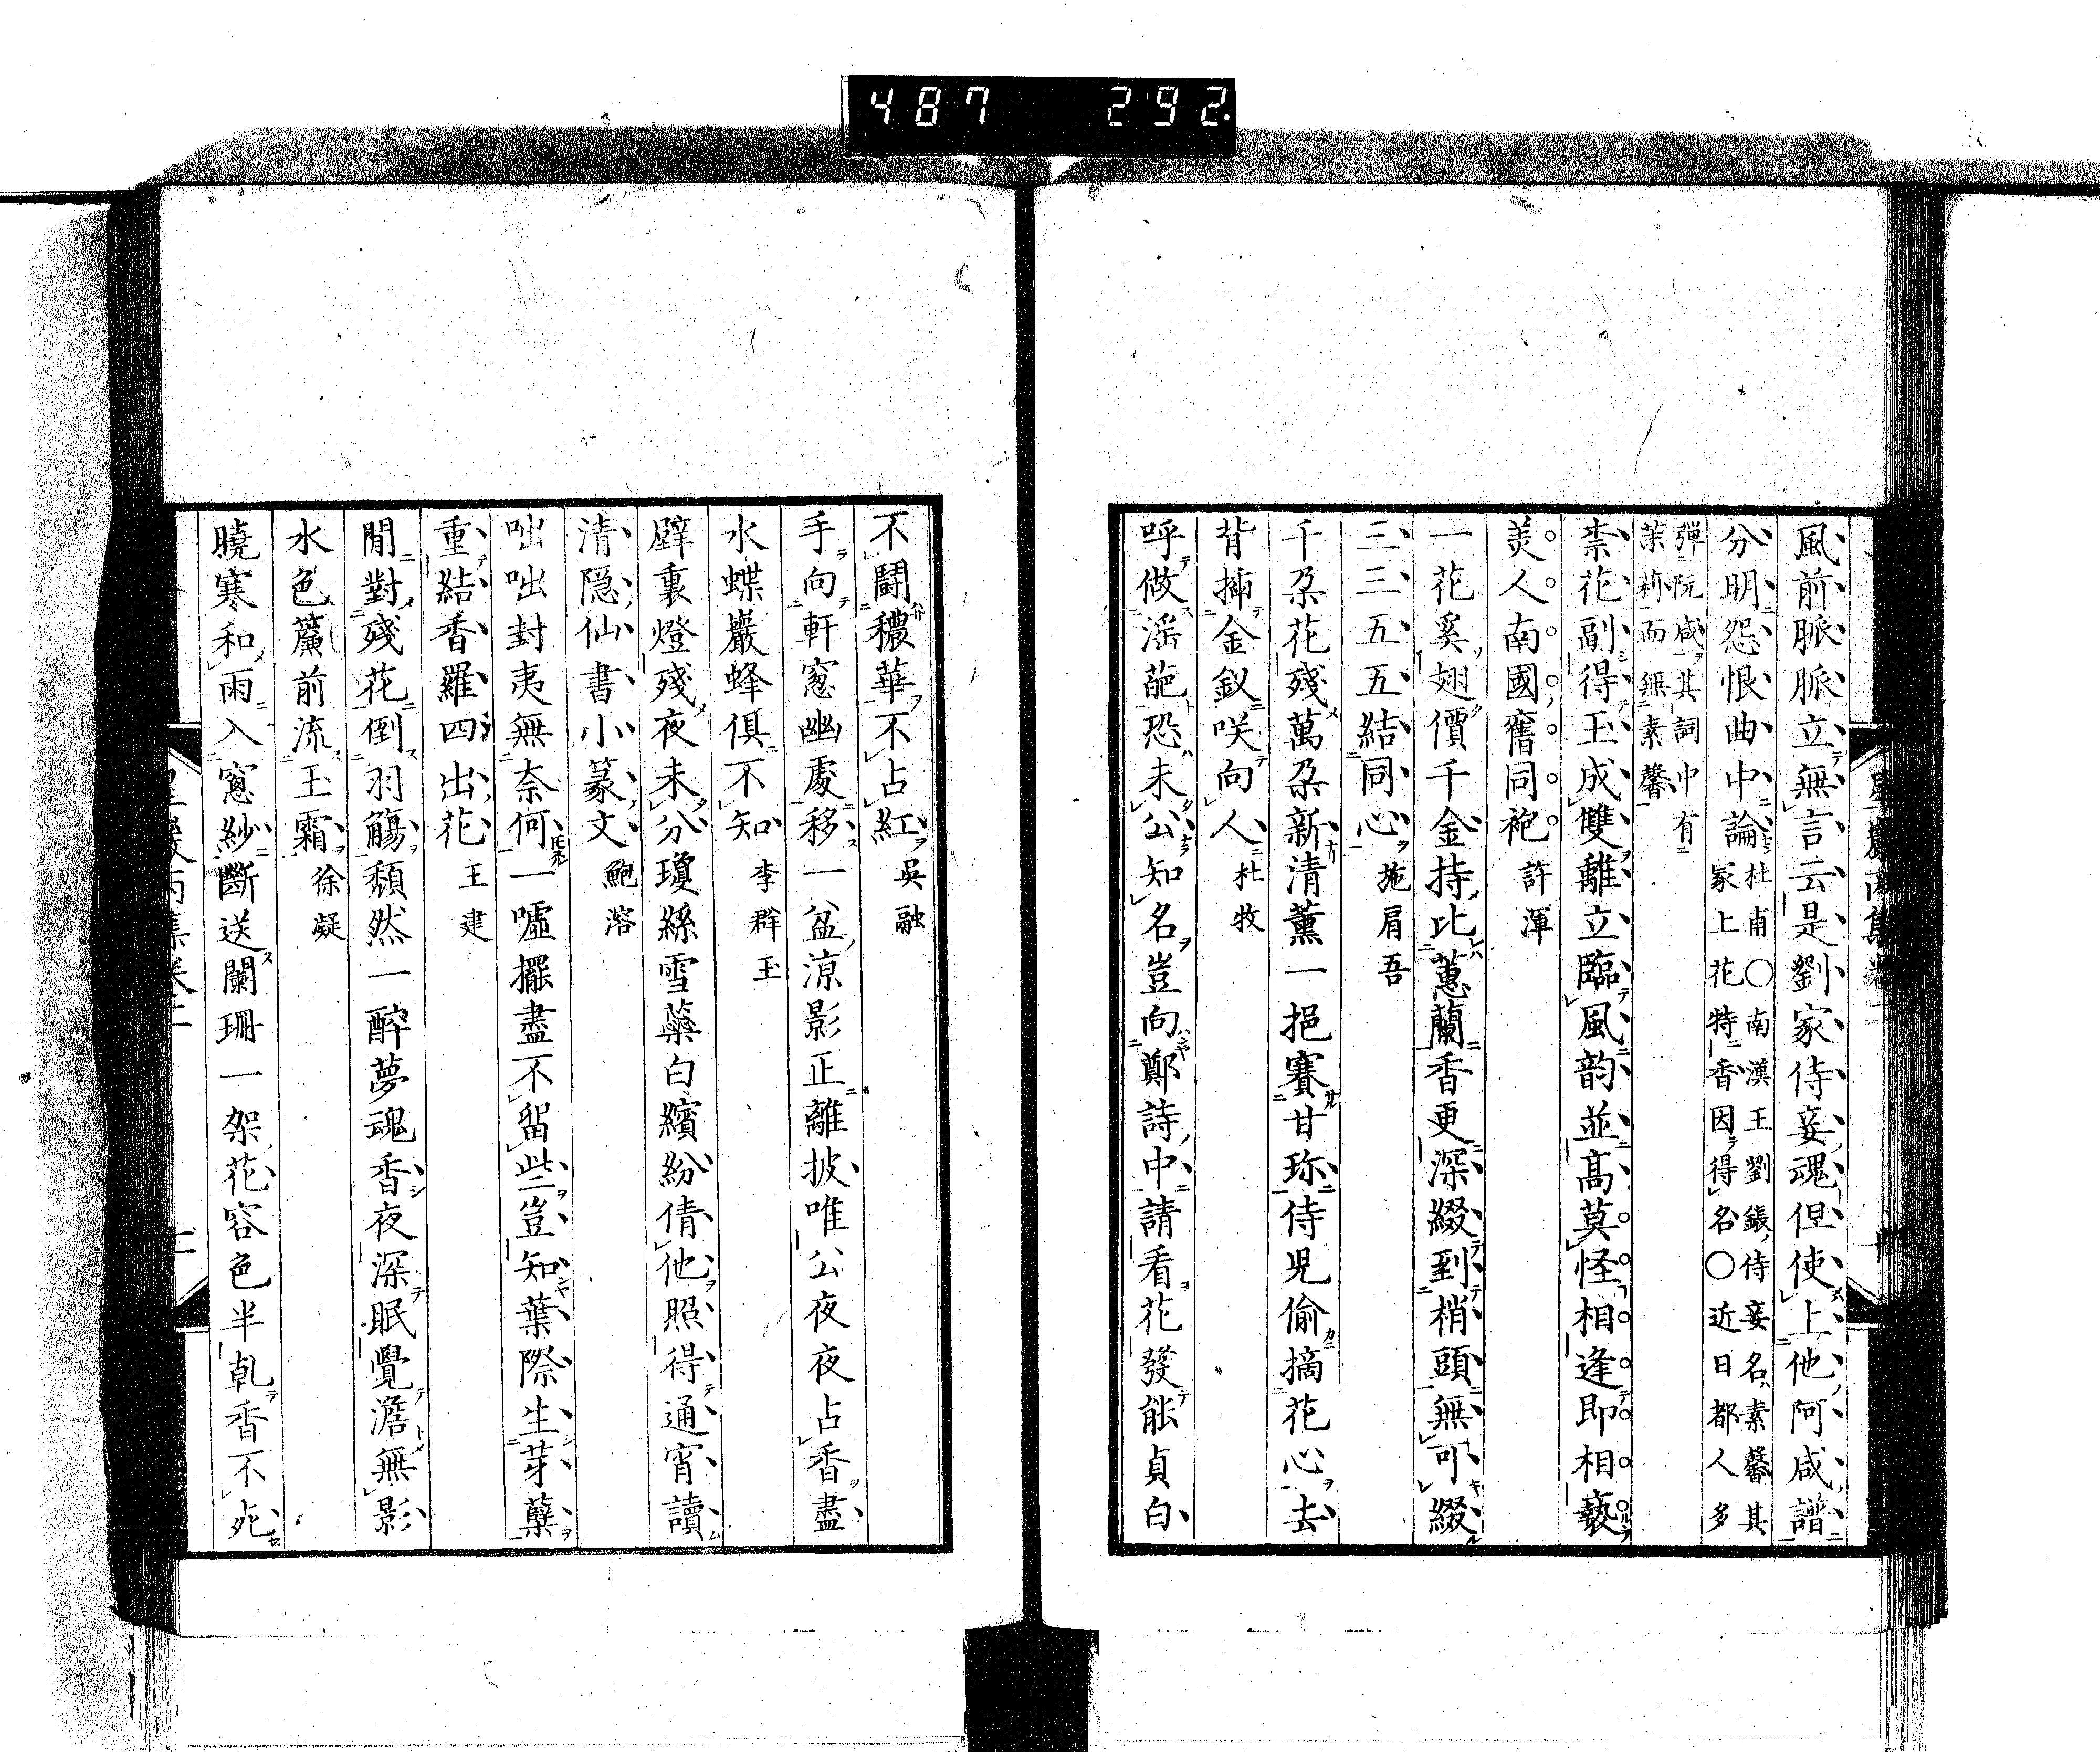 487 292
風前脈脈立無言云是劉家侍妾魂但使上他阿咸譜
分明怨恨曲中論 杜甫○南漢王劉鋹侍妾名素馨其
冢上花特香因得名○近日都人多
彈阮咸其詞中有
茉莉而無素馨
柰花副得玉成雙離立臨風韵並高莫怪相逢即相褻
美人南國舊同袍 許渾
一花奚翅價千金持比蕙蘭香更深綴到梢頭無可綴
三三五五結同心 施肩吾
千朶花殘萬朶新清薰一挹賽甘珎侍児偷摘花心去
背揷金釵咲向人 杜牧
呼做滛葩恐未公知名豈向鄭詩中請看花發能貞白
不鬪穠華不占紅 吳融
手向軒窓幽處移一盆涼影正離披唯公夜夜占香盡
水蝶巖蜂俱不知 李群玉
壁裏燈殘夜未分瓊絲雪蘂白繽紛倩他照得通宵讀
清隠仙書小篆文 鮑溶
咄咄封夷無奈何一嘘擺盡不留些豈知葉際生芽蘖
重結香羅四出花 王建
閒對殘花倒羽觴頽然一醉夢魂香夜深眠覺澹無影
水色簾前流玉霜 徐凝
曉寒和雨入窓紗斷送闌珊一架花容色半乾香不死